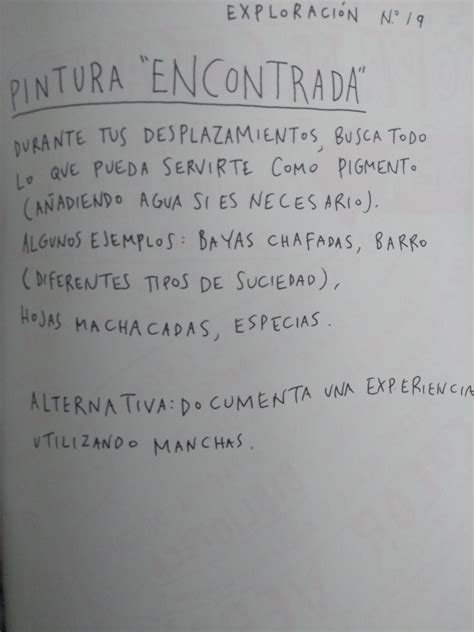 EXPLORACIÓN N.º 19
PINTURA "ENCONTRADA"
DURANTE TUS DESPLAZAMIENTOS, BUSCA TODO
LO QUE PUEDA SERVIRTE COMO PIGMENTO
(AÑADIENDO AGUA SI ES NECESARIO).
ALGUNOS EJEMPLOS: BAYAS CHAFADAS, BARRO
(DIFERENTES TIPOS DE SUCIEDAD),
HOJAS MACHACADAS, ESPECIAS.
ALTERNATIVA: DOCUMENTA UNA EXPERIENCIA
UTILIZANDO MANCHAS.